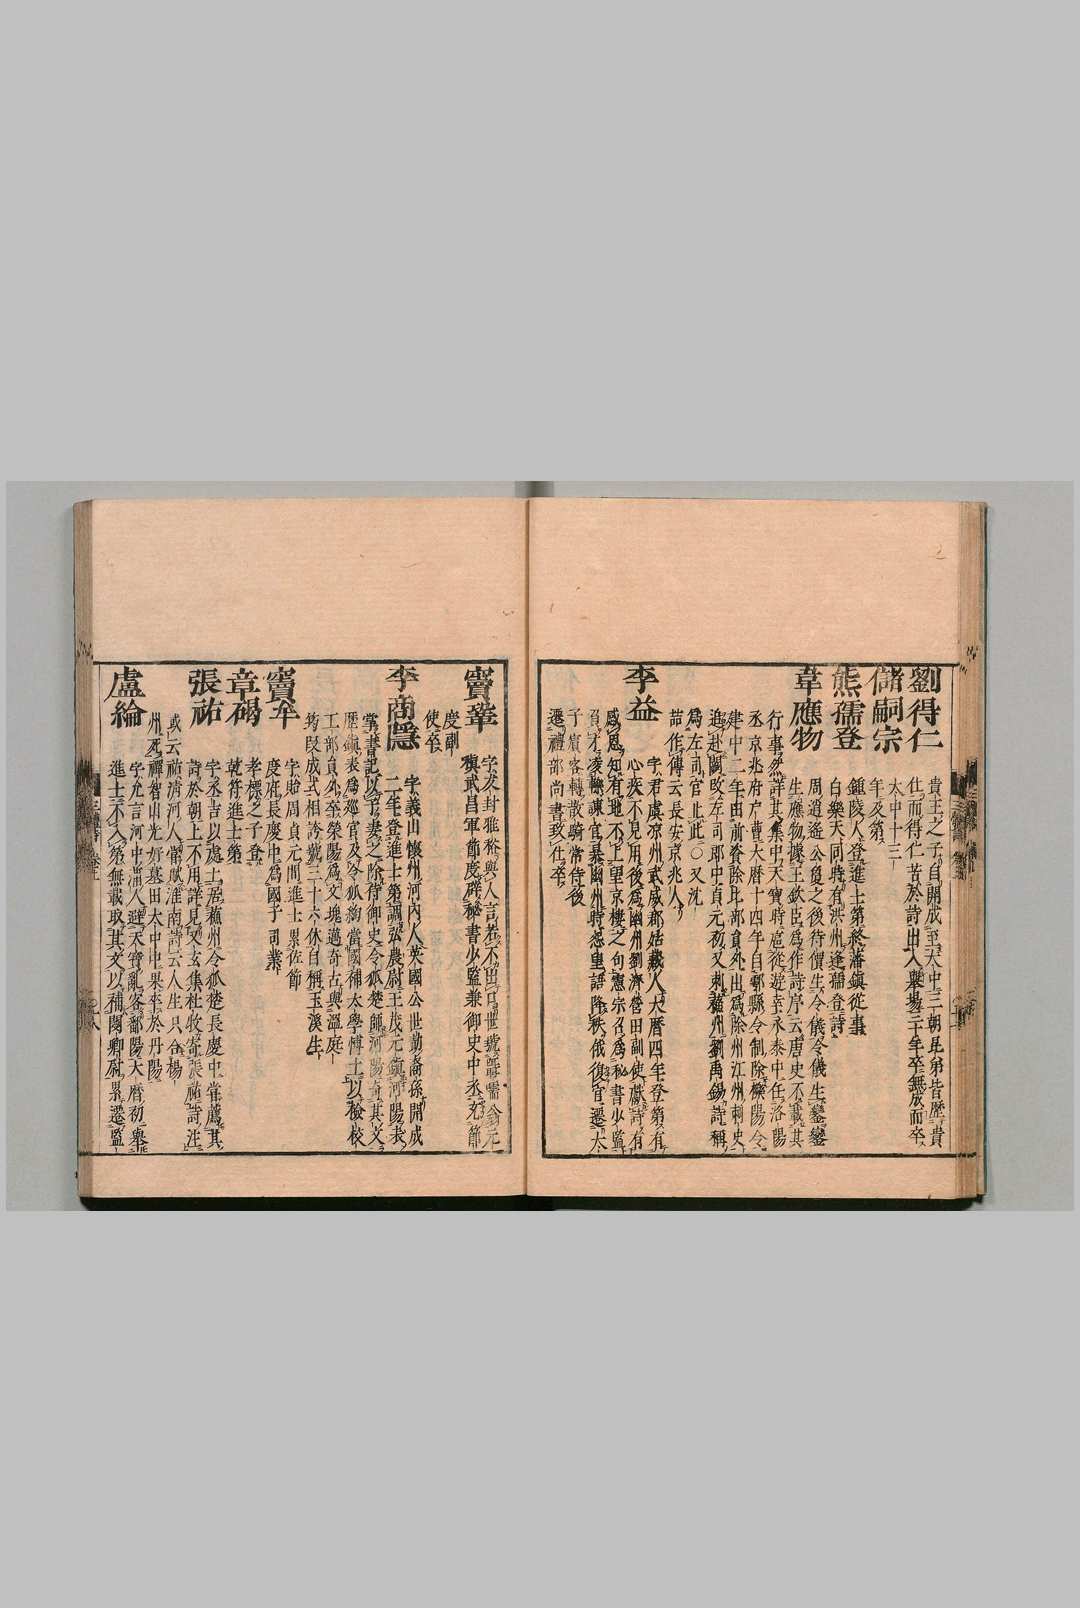 劉得仁
貴主之子自開成至大中三朝昆弟皆歷貴
仕而得仁苦於詩出入舉場三十年卒無成而卒
儲嗣宗
大中十三
年及第
熊孺登
鍾陵人登進士第終藩鎮從事
白樂天同時有洪州逢熊孺登詩
韋應物
周逍遙公夐之後待價生令儀令儀生鑾鑾
生應物據王欽臣為作詩序云唐史不載其
行事然詳其集中天寶時扈從遊幸永泰中任洛陽
丞京兆府戶曹大曆十四年自鄠縣令制除櫟陽令
建中二年由前資除比部員外出為滁州江州刺史
追赴闕改左司郎中貞元初又刺蘇州劉禹錫詩稱
為左司官止此○又沈
喆作傳云長安京兆人
李益
字君虞涼州武威郡姑臧人大曆四年登第有
心疾不見用後為幽州劉濟營田副使獻詩有
感恩知有地不上望京樓之句憲宗召為秘書少監
負才凌轢諫官暴幽州時怨望語降秩俄復官遷太
子賓客轉散騎常侍後
遷禮部尚書致仕卒
竇鞏
字友封雅裕與人言若不出口世號囁嚅翁元
稹武昌軍節度辟秘書少監兼御史中丞充節
度副
使卒
李商隱
字義山懷州河內人英國公世勣裔孫開成
二年登進士第調弘農尉王茂元鎮河陽表
掌書記以子妻之除侍御史令狐楚帥河陽奇其文
歷鎮表為巡官及令狐綯當國補太學博士以檢校
工部員外至滎陽為文瑰邁奇古與溫庭
筠段成式相誇號三十六休自稱玉溪生
竇牟
字貽周貞元間進士累佐節
度府長慶中為國子司業
章碣
孝標之子登
乾符進士第
張祐
字承吉以處士居蘇州令狐楚長慶中嘗薦其
詩於朝上不用詳見又玄集杜牧寄張祐詩注
或云祐清河人嘗賦淮南詩云人生只合楊
州死禪智山光好墓田大中中果卒於丹陽
盧綸
字允言河中蒲人避天寶亂客鄱陽大曆初舉
進士不入第無載取其文以補閿卿尉累遷監